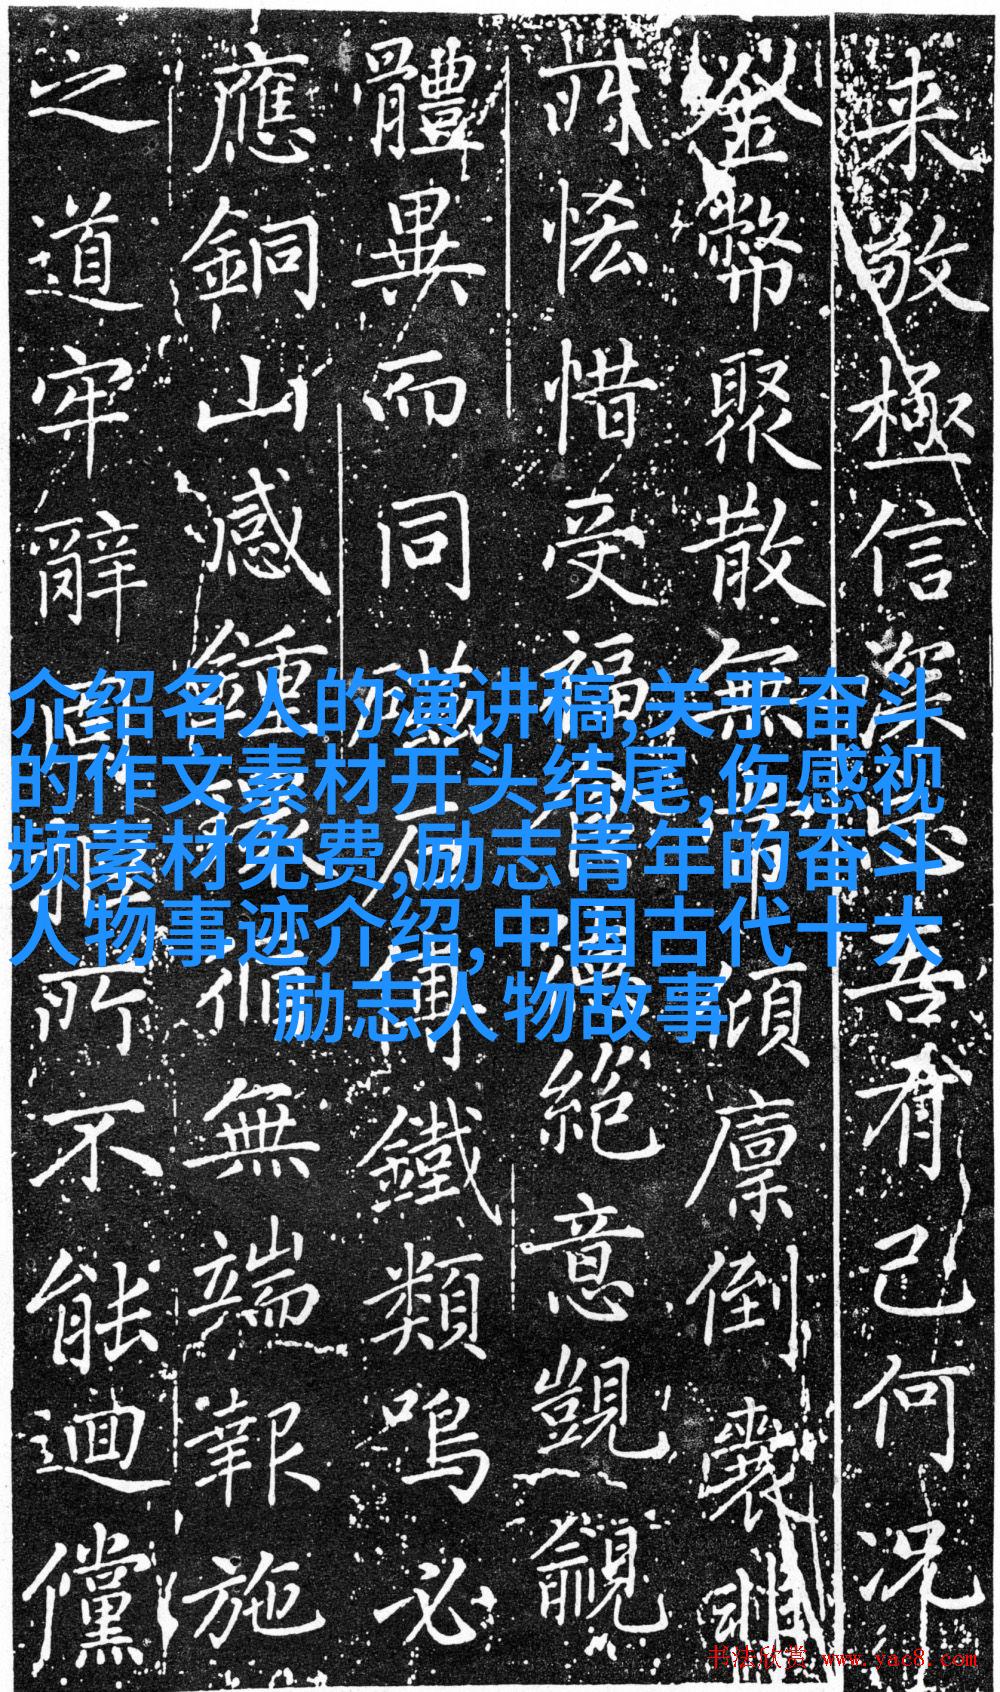 来敬極信深心吾有己何况
金幣聚散無常傾廩倒囊非
所恡惜受福絕意覬覦
體異而同鐵類鳴必
應銅山感鍾無端報施
之道牢辭所不能迴儻
介绍名人的演讲稿,关于奋斗
的作文素材开头结尾,伤感视
频素材免费,励志青年的奋斗
人物事迹介绍,中国古代十大
励志人物故事
书法欣赏 www.yac8.com